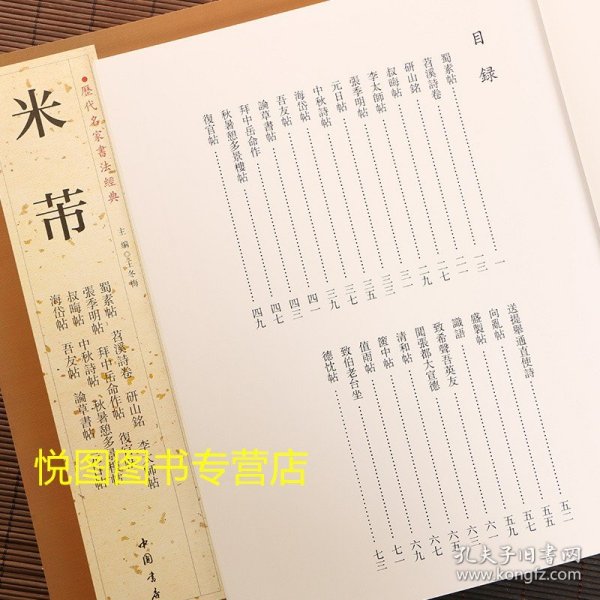 目录
蜀素帖 一
苕溪詩卷 一三
研山銘 二一
叔晦帖 二七
李太師帖 二九
張季明帖 三一
元日帖 三三
中秋詩帖 三五
海岱帖 三七
吾友帖 三九
論草書帖 四一
拜中岳命作 四三
秋暑憩多景樓帖 四七
復官帖 四九
送提舉通直使詩 五一
向亂帖 五五
盛製帖 五七
識語 五九
致希聲吾英友 六一
閏張都大宣德
清和帖
篋中帖
值雨帖
致伯老台坐 七一
德忱帖 七三
歷代名家書法經典
米芾
主編 王冬梅
蜀素帖 苕溪詩卷 研山銘 李太師帖
張季明帖 拜中岳命作帖 復官帖
叔晦帖 中秋詩帖 秋暑憩多景樓帖
海岱帖 吾友帖 論草書帖
中國書店
悦图图书专营店
孔夫子旧书网
www.kongfz.com